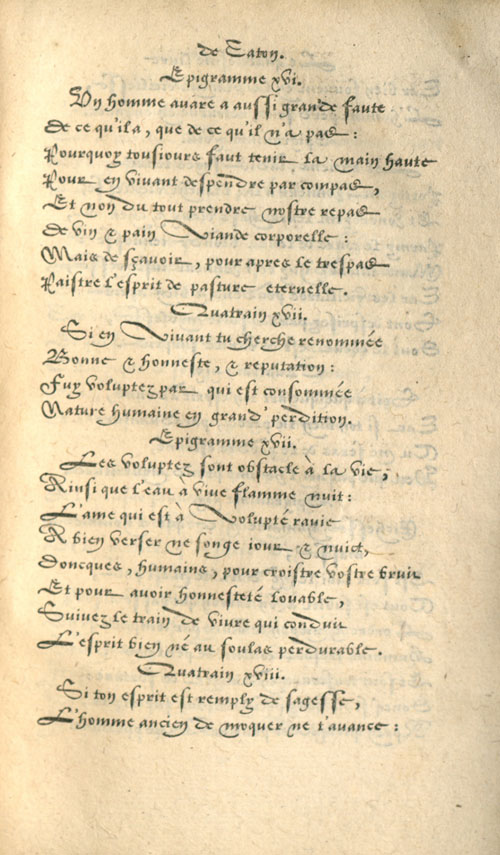 de Caton.
Epigramme xvi.
Vn homme auare a aussi grande faute
De ce qu'il a, que de ce qu'il n'a pas :
Pourquoy tousiours faut tenir la main haute
Pour en vivant despendre par compas,
Et non du tout prendre nostre repas
De vin & pain Viande corporelle :
Mais de sçavoir, pour apres le trespas
Paistre l'esprit de pasture eternelle.
Quatrain xvii.
Si en Vivant tu cherche renommée
Bonne & honneste, & reputation :
Fuy voluptez par qui est consommée
Nature humaine en grand' perdition.
Epigramme xvii.
Les voluptez sont obstacle à la vie ;
Ainsi que l'eau à vive flamme nuit :
L'ame qui est à Volupté ravie
A bien verser ne songe iour & nuict,
Doncques, humains, pour croistre vostre bruit
Et pour avoir honnesteté louable,
Suivez le train de vivre qui conduit
L'esprit bien né au soulas perdurable.
Quatrain xviii.
Si ton esprit est remply de sagesse,
L'homme ancien de moquer ne t'avance :